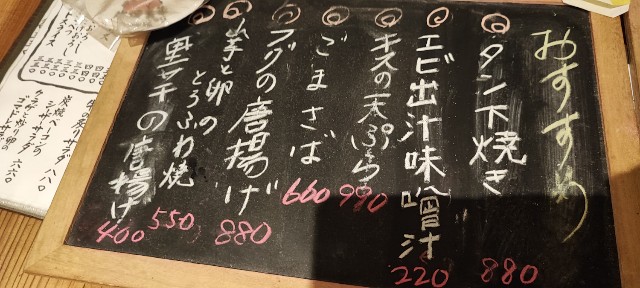 おすすめ
タン下焼き 880
エビ出汁味噌汁 220
キスの天ぷら 990
ごまさば 660
フグの唐揚げ 880
山芋と卵の
とろふわ焼 550
里芋の唐揚げ 400
炭焼ベーコンの
シーザーサラダ